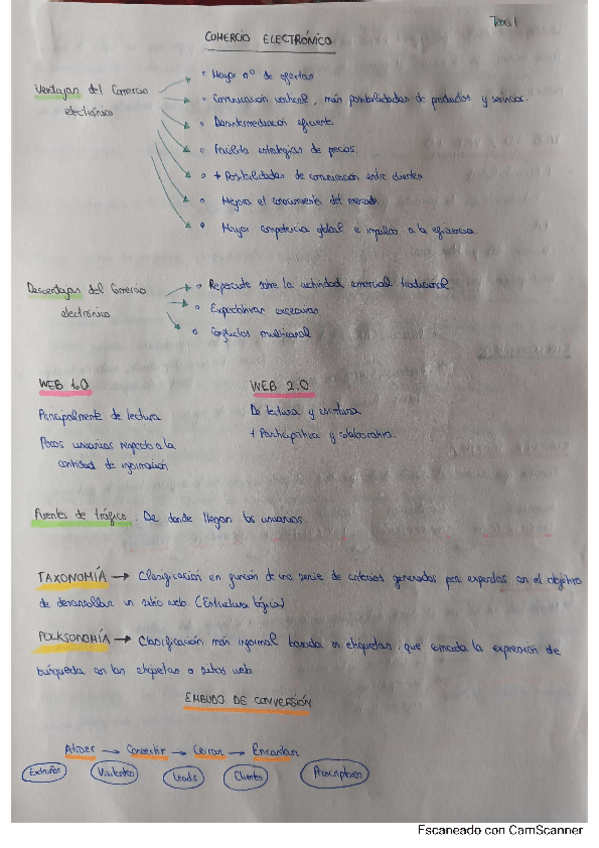 Tema 1
COMERCIO ELECTRÓNICO
Ventajas del Comercio electrónico
• Mayor nº de ofertas
• Comunicación vertical, más posibilidades de productos y servicios.
• Desintermediación eficiente
• Facilita estrategias de precios.
• + Posibilidades de comunicación entre clientes
• Mejora el conocimiento del mercado
• Mayor competencia global e impulso a la eficiencia
Desventajas del Comercio electrónico
• Repercute sobre la actividad comercial tradicional.
• Expectativas excesivas
• Conflictos multicanal
WEB 1.0
Principalmente de lectura
Pocos usuarios respecto a la
cantidad de información
WEB 2.0
De lectura y escritura
+ Participativa y colaborativa.
Fuentes de tráfico: De donde llegan los usuarios.
TAXONOMÍA → Clasificación en función de una serie de criterios generados por expertos con el objetivo
de desarrollar un sitio web (Estructura lógica)
FOLKSONOMÍA → Clasificación más informal basada en etiquetas, que vincula la expresión de
búsqueda con las etiquetas o sitios web
EMBUDO DE CONVERSIÓN
Atraer → Convertir → Cerrar → Encantar
Extraños Visitantes Leads Clientes Prescriptores
Escaneado con CamScanner